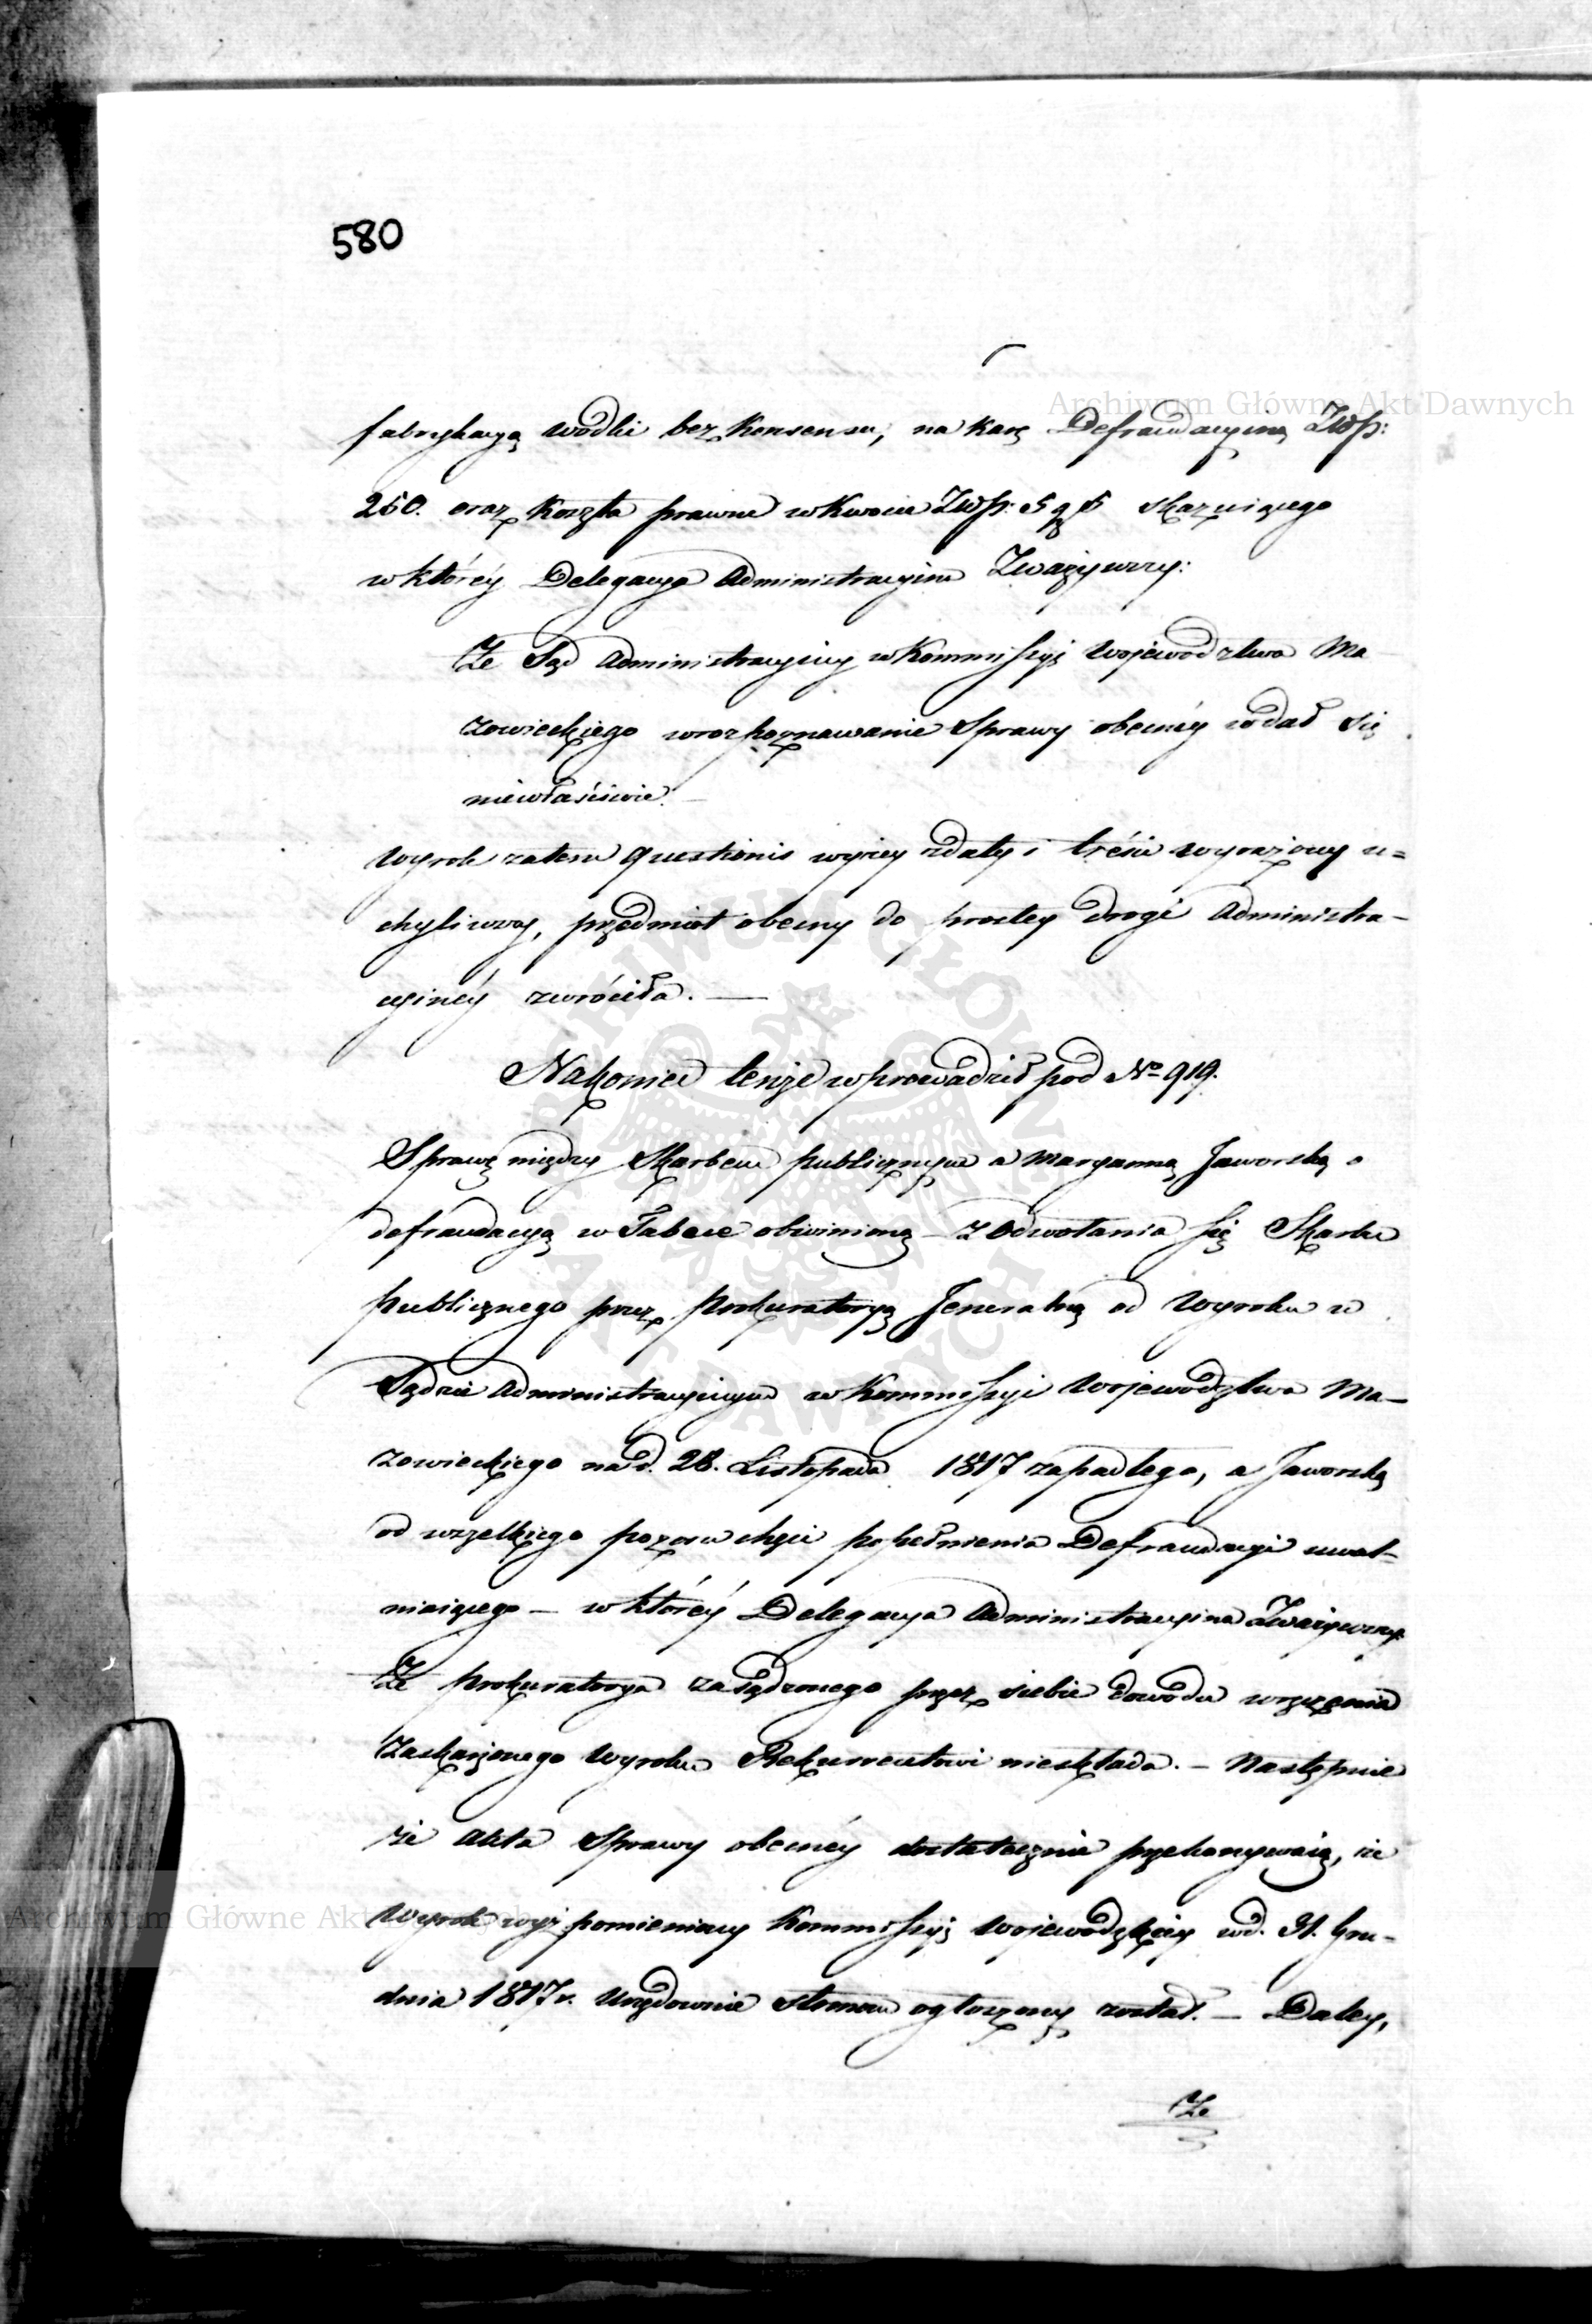 580
Archiwum Główne Akt Dawnych
fabrykacyą wódki bez Konsensu, na karę Defraudacyiną Złłp:
250. oraz koszta prawne w kwocie Złłp: 5 g 5 skazuiącego
w któréy Delegacya Administracyina Zważywszy:
Że Sąd Administracyiny w Kommissyi Wojewodztwa Ma
zowieckiego w rozpoznawanie Sprawy obecnéy wdał się
niewłaściwie. —
Wyrok zatem questionis wyżey zdaty i treści wyrażony u=
chyliwszy, przedmiot obecny do prostey drogi Administra-
cyinéy zwróciła. —
Nakoniec tenże wprowadził pod No 919.
Sprawę między Skarbem publicznym a Maryanną Jaworską o
defraudacyą w Tabace obwinioną z Odwołania się Skarbu
publicznego przez Prokuratoryą Jeneralną od Wyroku w
Sądzie Administracyinym w Kommissyi Wojewodztwa Ma-
zowieckiego na d. 28. Listopada 1817 zapadłego, a Jaworską
od wszelkiego pozoru chęci popełnienia Defraudacyi uwal-
niaiącego — w któréy Delegacya Administracyina Zważywszy
Że Prokuratorya zasądzonego przez siebie dowodu wręczenia
Zaskarżonego Wyroku Rekurrentowi nieskłada. — Następnie
że Akta Sprawy obecnéy dostatecznie przekonywaią, że
Wyrok wyż pomieniony Kommissyi Wojewodzkiey w d. 31. Gru-
dnia 1817 r. Urzędownie stronom ogłoszony został. — Daley,
Że
Archiwum Główne Akt Dawnych
ARCHIWUM GŁÓWNE AKT DAWNYCH